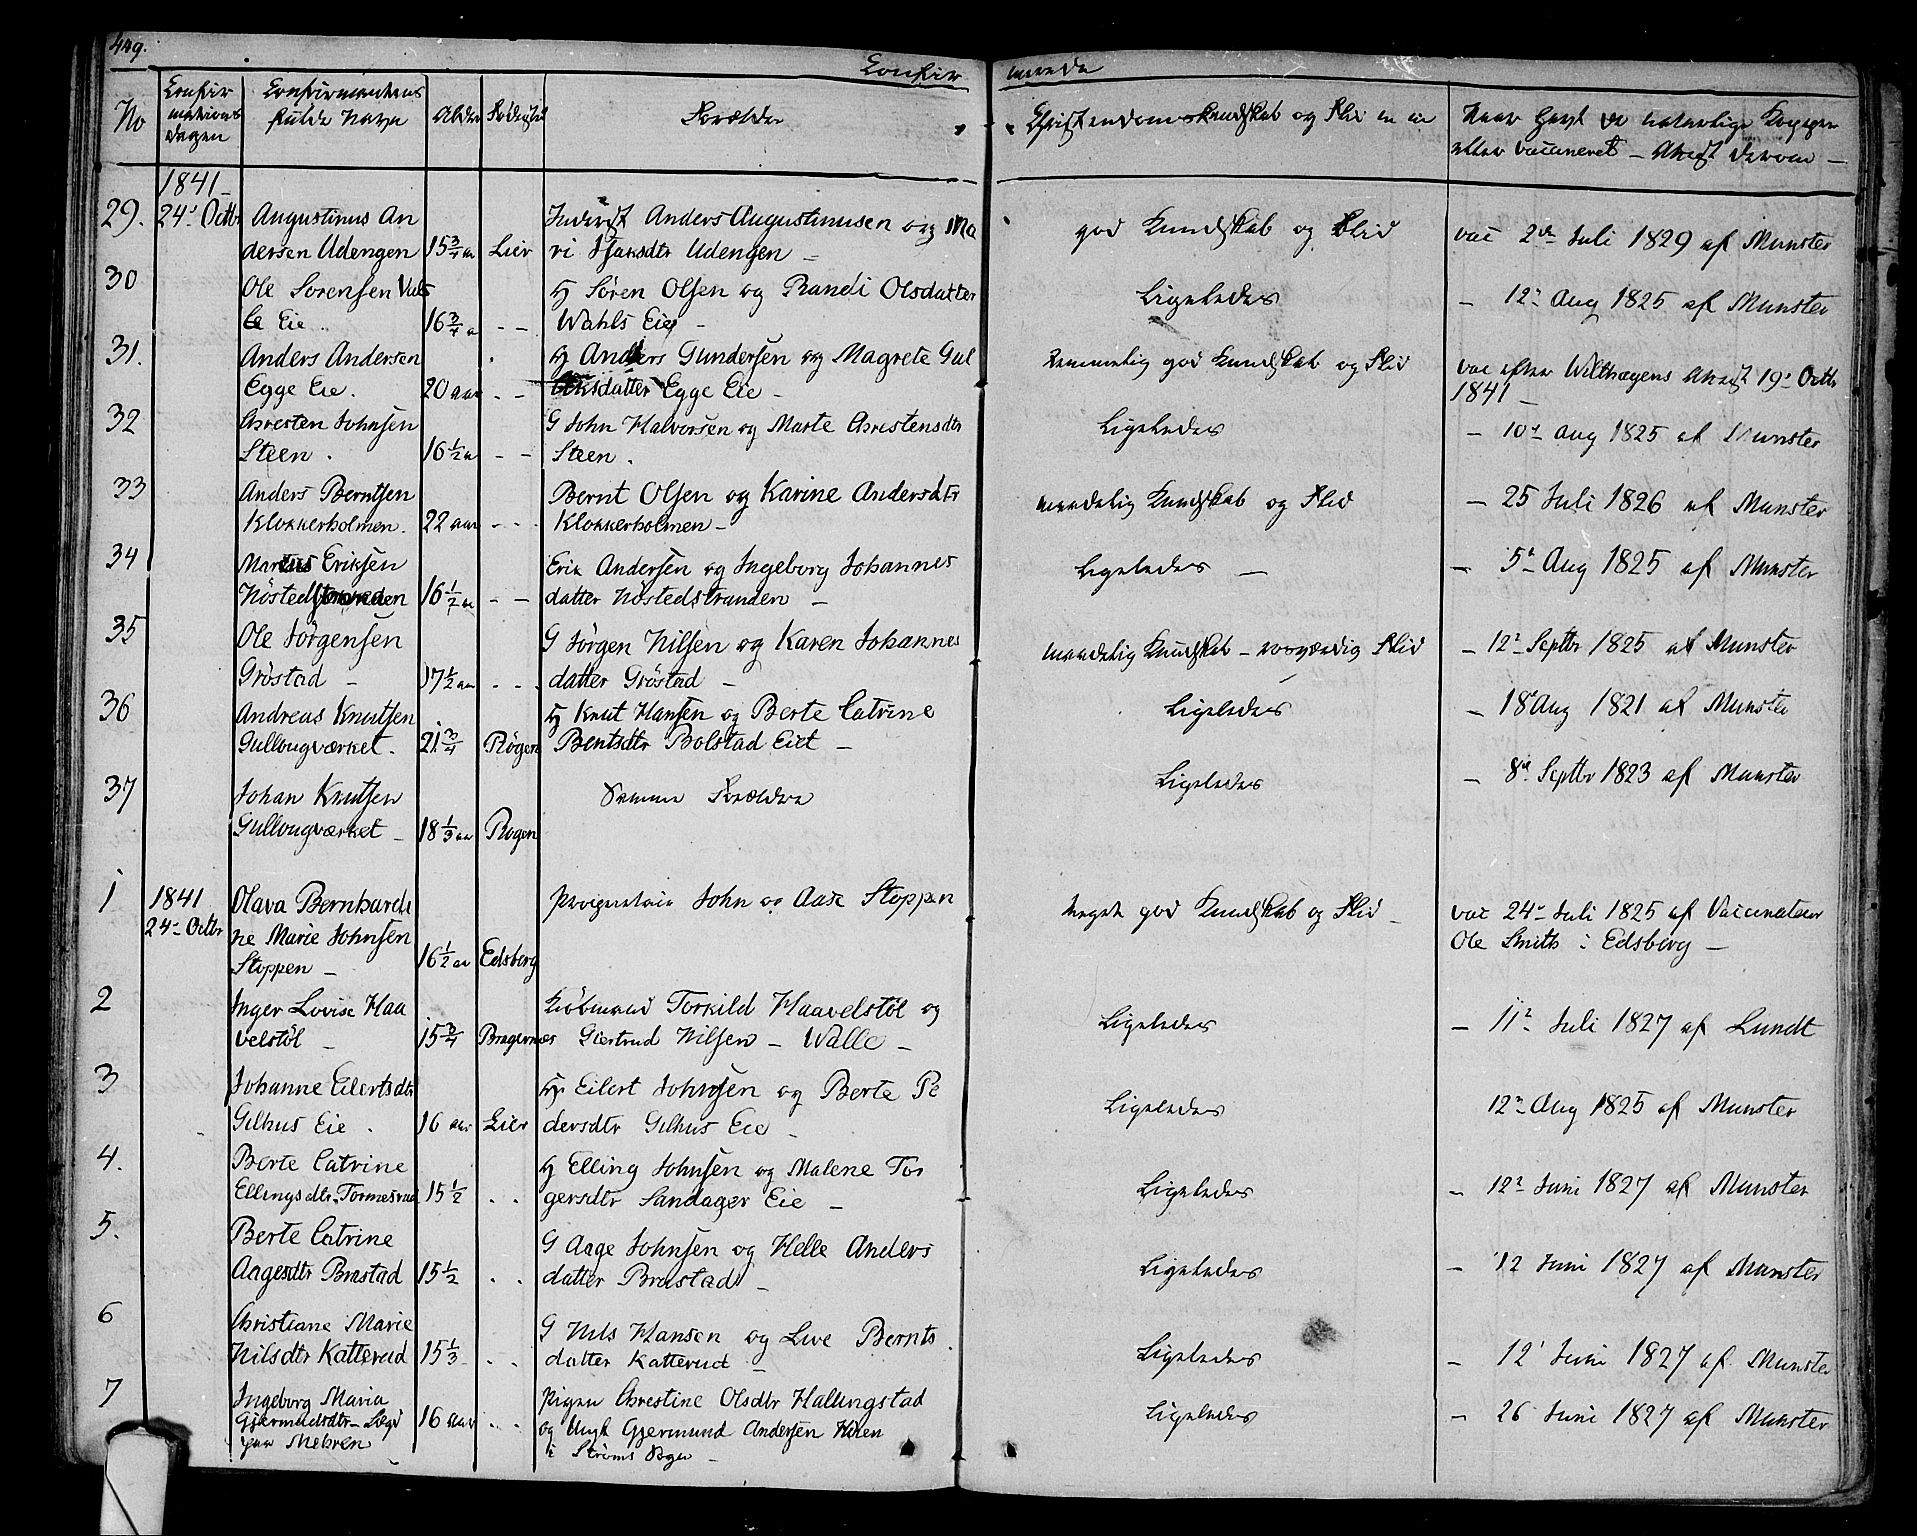 449.
Confir merede
No
Confir
mations
dagen
Confirmantens
fulde Navn
Alder
Fødested
Forældre
Christendomskundskab og Flid m m
Naar havt de naturlige Kopper
eller vaccineret – Attest derom –
1841 –
29. 24de Octbr Augustinus An
dersen Udengen 15 3/4 aar Lier
Inderst Anders Augustinusen og Ma
ri Isaksdtr Udengen –
god Kundskab og Flid
vac 2den Juli 1829 af Munster
30 Ole Sørensen
Eie 16 3/4 a – –
Hj Søren Olsen og Randi Olsdatter
Wahls Eie –
Ligeledes
– 12te Aug 1825 af Munster
31. Anders Andersen
Egge Eie. 20 aar – –
Hj Anders Gundersen og Magrete Gul
datter Egge Eie –
Temmelig god Kundskab og Flid
vac efter Wilthagens Attest 19de Octbr
1841 –
32 Christen Johnsen
Steen . 16 1/2 a – –
G John Halvorsen og Marte Christensdtr
Steen .
Ligeledes
– 10de Aug 1825 af Munster
33 Anders Berntsen
Klokkerholmen. 22 aar – – –
Bernt Olsen og Karine Andersdtr
Klokkerholmen –
maadelig Kundskab og Flid
– 25 Juli 1826 af Munster
34 Marcus Eriksen
Nöstedstranden 16 1/2 a – –
Erik Andersen og Ingeborg Johannes
datter Nöstedstranden –
Ligeledes –
– 5te Aug 1825 af Munster
35 Ole Jörgensen
Gröstad – 17 1/2 aar – – –
G Jörgen Nilsen og Karen Johannes
datter Gröstad –
maadelig Kundskab – roesværdig Flid
– 12te Septbr 1825 af Munster
36 Andreas Knutsen
Gullougværket. 21 3/4 Rögen
Hj Knut Hansen og Berte Catrine
Bentsdtr Bolstad Eiet –
Ligeledes
– 18de Aug 1821 af Munster
37 Johan Knutsen
Gullougværket – 18 1/3 aar Rogen
Samme Forældre
Ligeledes
– 8de Septbr 1823 af Munster
1 1841
24de Octbr
Olava Bernhardi
ne Marie Johnsen
Stoppen – 16 1/2 aar Edsberg
John og Aase Stoppen
meget god Kundskab og Flid –
vac 24de Juli 1825 af Vaccinateur
Ole Smith i Edsberg –
2 Inger Lovise Haa
velstöl – 15 3/4 Bragernæs
Kiöbmand Torkild Haavelstöl og
Giertrud Nilsen – Walle –
Ligeledes
– 11te Juli 1827 af Lundt
3 Johanne Eilertsdtr
Gilhus Eie . 16 aar Lier
Hj Eilert Johnsen og Berte Pe
dersdtr Gilhus Eie –
Ligeledes
12te Aug 1825 af Munster
4. Berte Catrine
Ellingsdtr Tormesrud 15 1/2 . .
Hj Elling Johnsen og Malene Tor
gersdtr Sandager Eie –
Ligeledes
– 12te Juni 1827 af Munster
5. Berte Catrine
Aagesdtr Brastad 15 1/2 . .
G Aage Johnsen og Helle Anders
datter Brastad –
Ligeledes
– 12 Juni 1827 af Munster
6 Christiane Marie
Nilsdtr Katterud 15 1/3 . .
G Nils Hansen og Live Bernts
datter Katterud –
Ligeledes
– 12te Juni 1827 af Munster
7 Ingeborg Maria
Gjermundsdtr –
paa Mehren 16 aar . .
Pigen Christine Olsdtr Hallingstad
og Ungk Gjermund Andersen Hiren
i Ströms Sogn –
Ligeledes
– 26 Juni 1827 af Munster